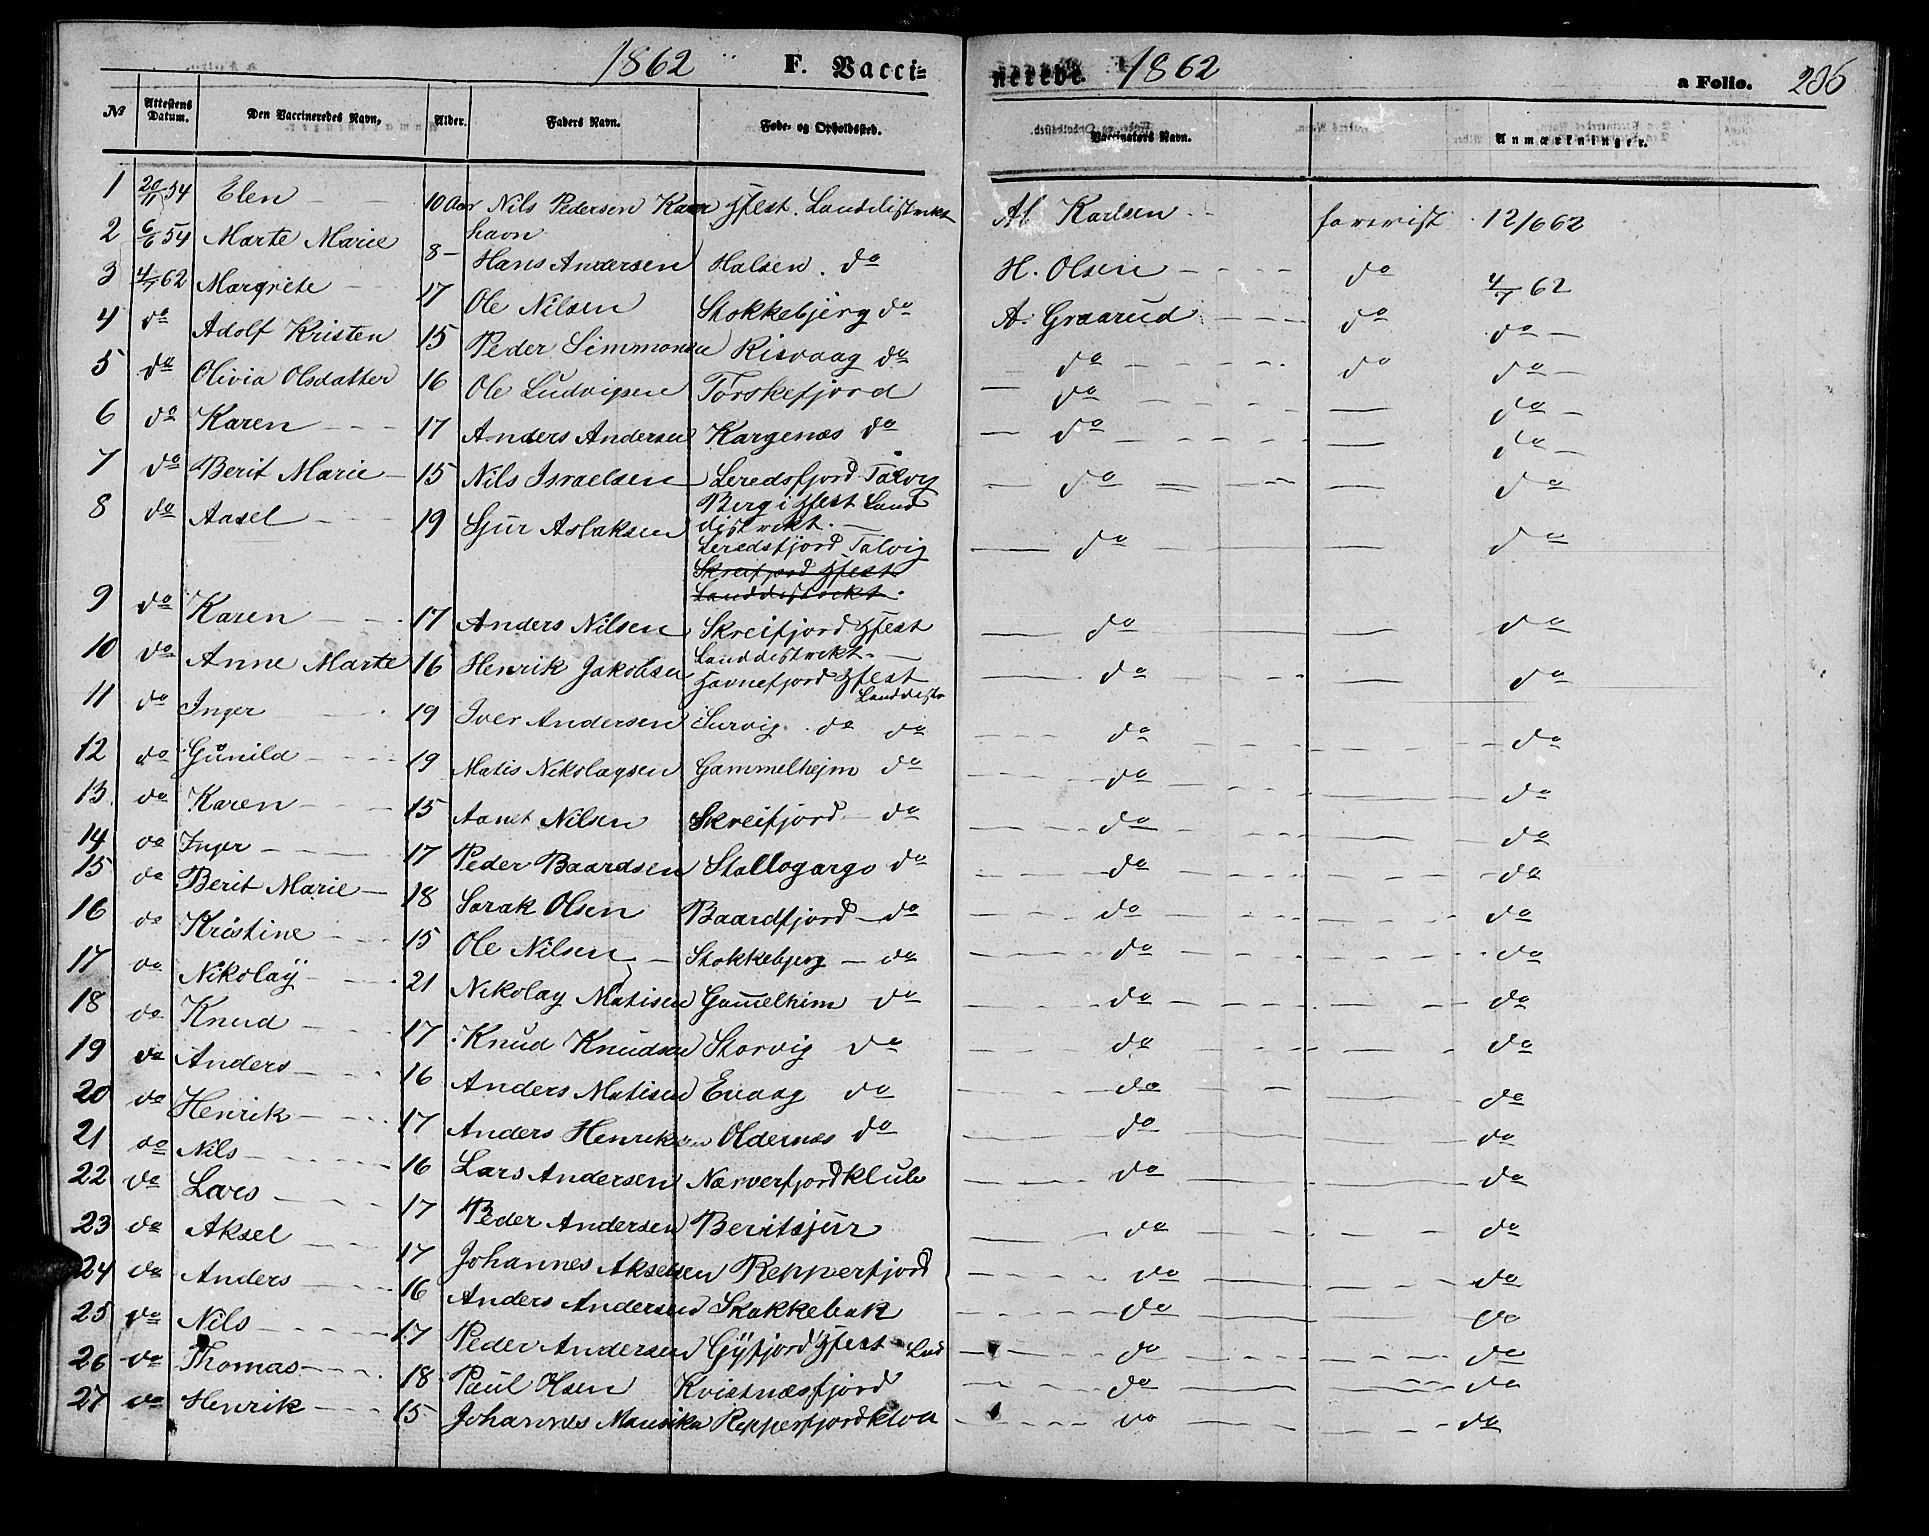 1862 F. Vacci- nerede. 1862 a Folio. 236
No Attestens Datum. Den Vaccineredes Navn, Alder. Faders Navn. Føde- og Opholdssted. Vaccinators Navn. Anmærkninger.
1 20/11 54 Elen 10 Aar Nils Pedersen Hfest. Landdistrekt Al Karlsen forevist 12/6 62
havn
2 6/6 54 Marte Marie 8 Hans Andersen Halsen. do H. Olsen do 4/7 62
3 4/7 62 Margrete 17 Ole Nilsen Stokkebjerg do A. Graarud do do
4 do Adolf Kristen 15 Peder Simmonsen Risvaag do do do do
5 do Olivia Olsdatter 16 Ole Ludvigsen Torskefjord do do
6 do Karen 17 Anders Andersen Kargenæs do do do
7 do Berit Marie 15 Nils Israelsen Leredsfjord Talvig do do
Berg i Hfest Land
distrekt.
8 do Aasel 19 Sjur Aslaksen Leredsfjord Talvig do do
Skreifjord Hfest
Landdistrekt.
9 do Karen 17 Anders Nilsen Skreifjord Hfest do do
Landdistrekt.
10 do Anne Marte 16 Henrik Jakobsen Havnefjord Hfest do do
Landdistr
11 do Inger 19 Iver Andersen Survig do do do do
12 do Gunild 19 Matis Nikolaysen Gammelhejm do do do
13 do Karen 15 Aanet Nilsen Skreifjord do do do
14 do Inger 17 Peder Baardsen Stallogargo do do do
15 do Berit Marie 18 Sarak Olsen Baardfjord do do do
16 do Kristine 15 Ole Nilsen Stokkebjerg do do do
17 do Nikolaÿ 21 Nikolay Matisen Gam̄elheim do do do
18 do Knud 17 Knud Knudsen Storvig do do do
19 do Anders 16 Anders Matisen Evaag do do do
20 do Henrik 17 Anders Henriksen Oldernæs do do do
21 do Nils 16 Lars Andersen Nærverfjordklub do do
22 do Lars 17 Peder Andersen Beritsjur do do
23 do Aksel 17 Johannes Akselsen Repperfjord do do
24 do Anders 16 Anders Andersen Skakkebak do do
25 do Nils 17 Peder Andersen Gÿfjord Hfest Lad do do
26 do Thomas 18 Paul Olsen Kvistnæsfjord do do
27 do Henrik 15 Johannes Repperfjordklva do do